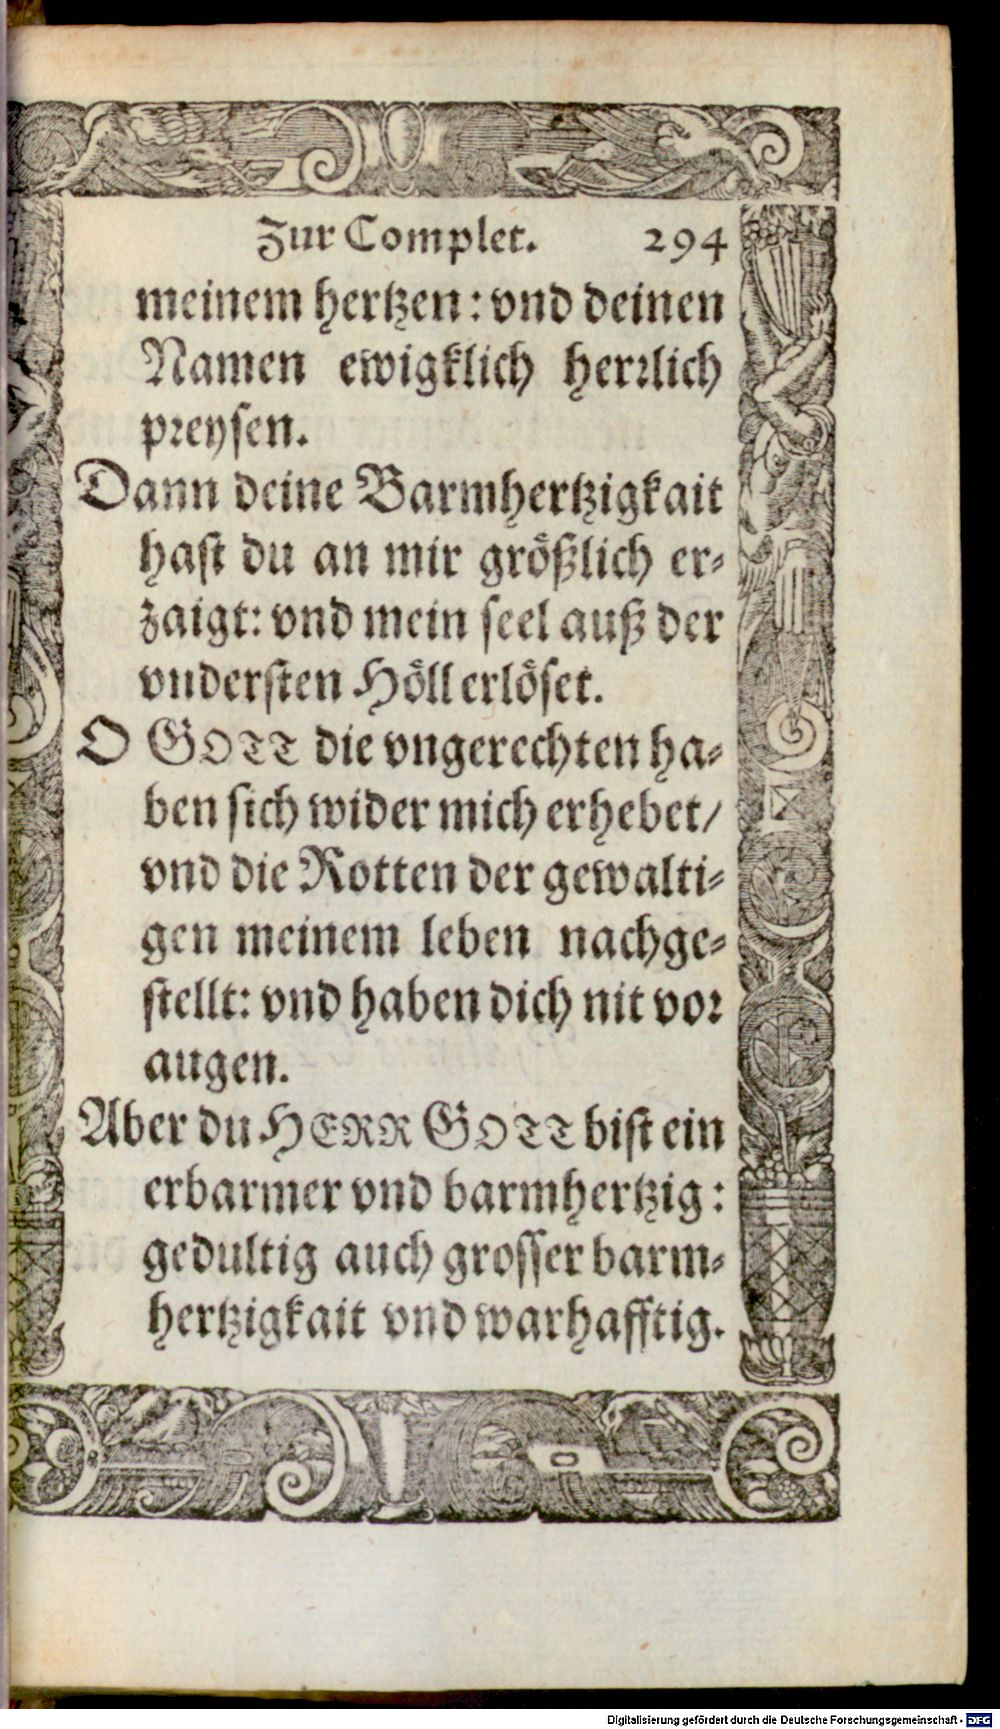 Zur Complet. 294
meinem hertzen: vnd deinen
Namen ewigklich herꝛlich
pꝛeysen.
Dann deine Barmhertzigkait
hast du an mir größlich er-
zaigt: vnd mein seel auß der
vndersten Höll erlöset.
O GOTT die vngerechten ha-
ben sich wider mich erhebet/
vnd die Rotten der gewalti-
gen meinem leben nachge-
stellt: vnd haben dich nit voꝛ
augen.
Aber du HERR GOTT bist ein
erbarmer vnd barmhertzig:
gedultig auch grosser barm-
hertzigkait vnd warhafftig.
Digitalisierung gefördert durch die Deutsche Forschungsgemeinschaft - DFG